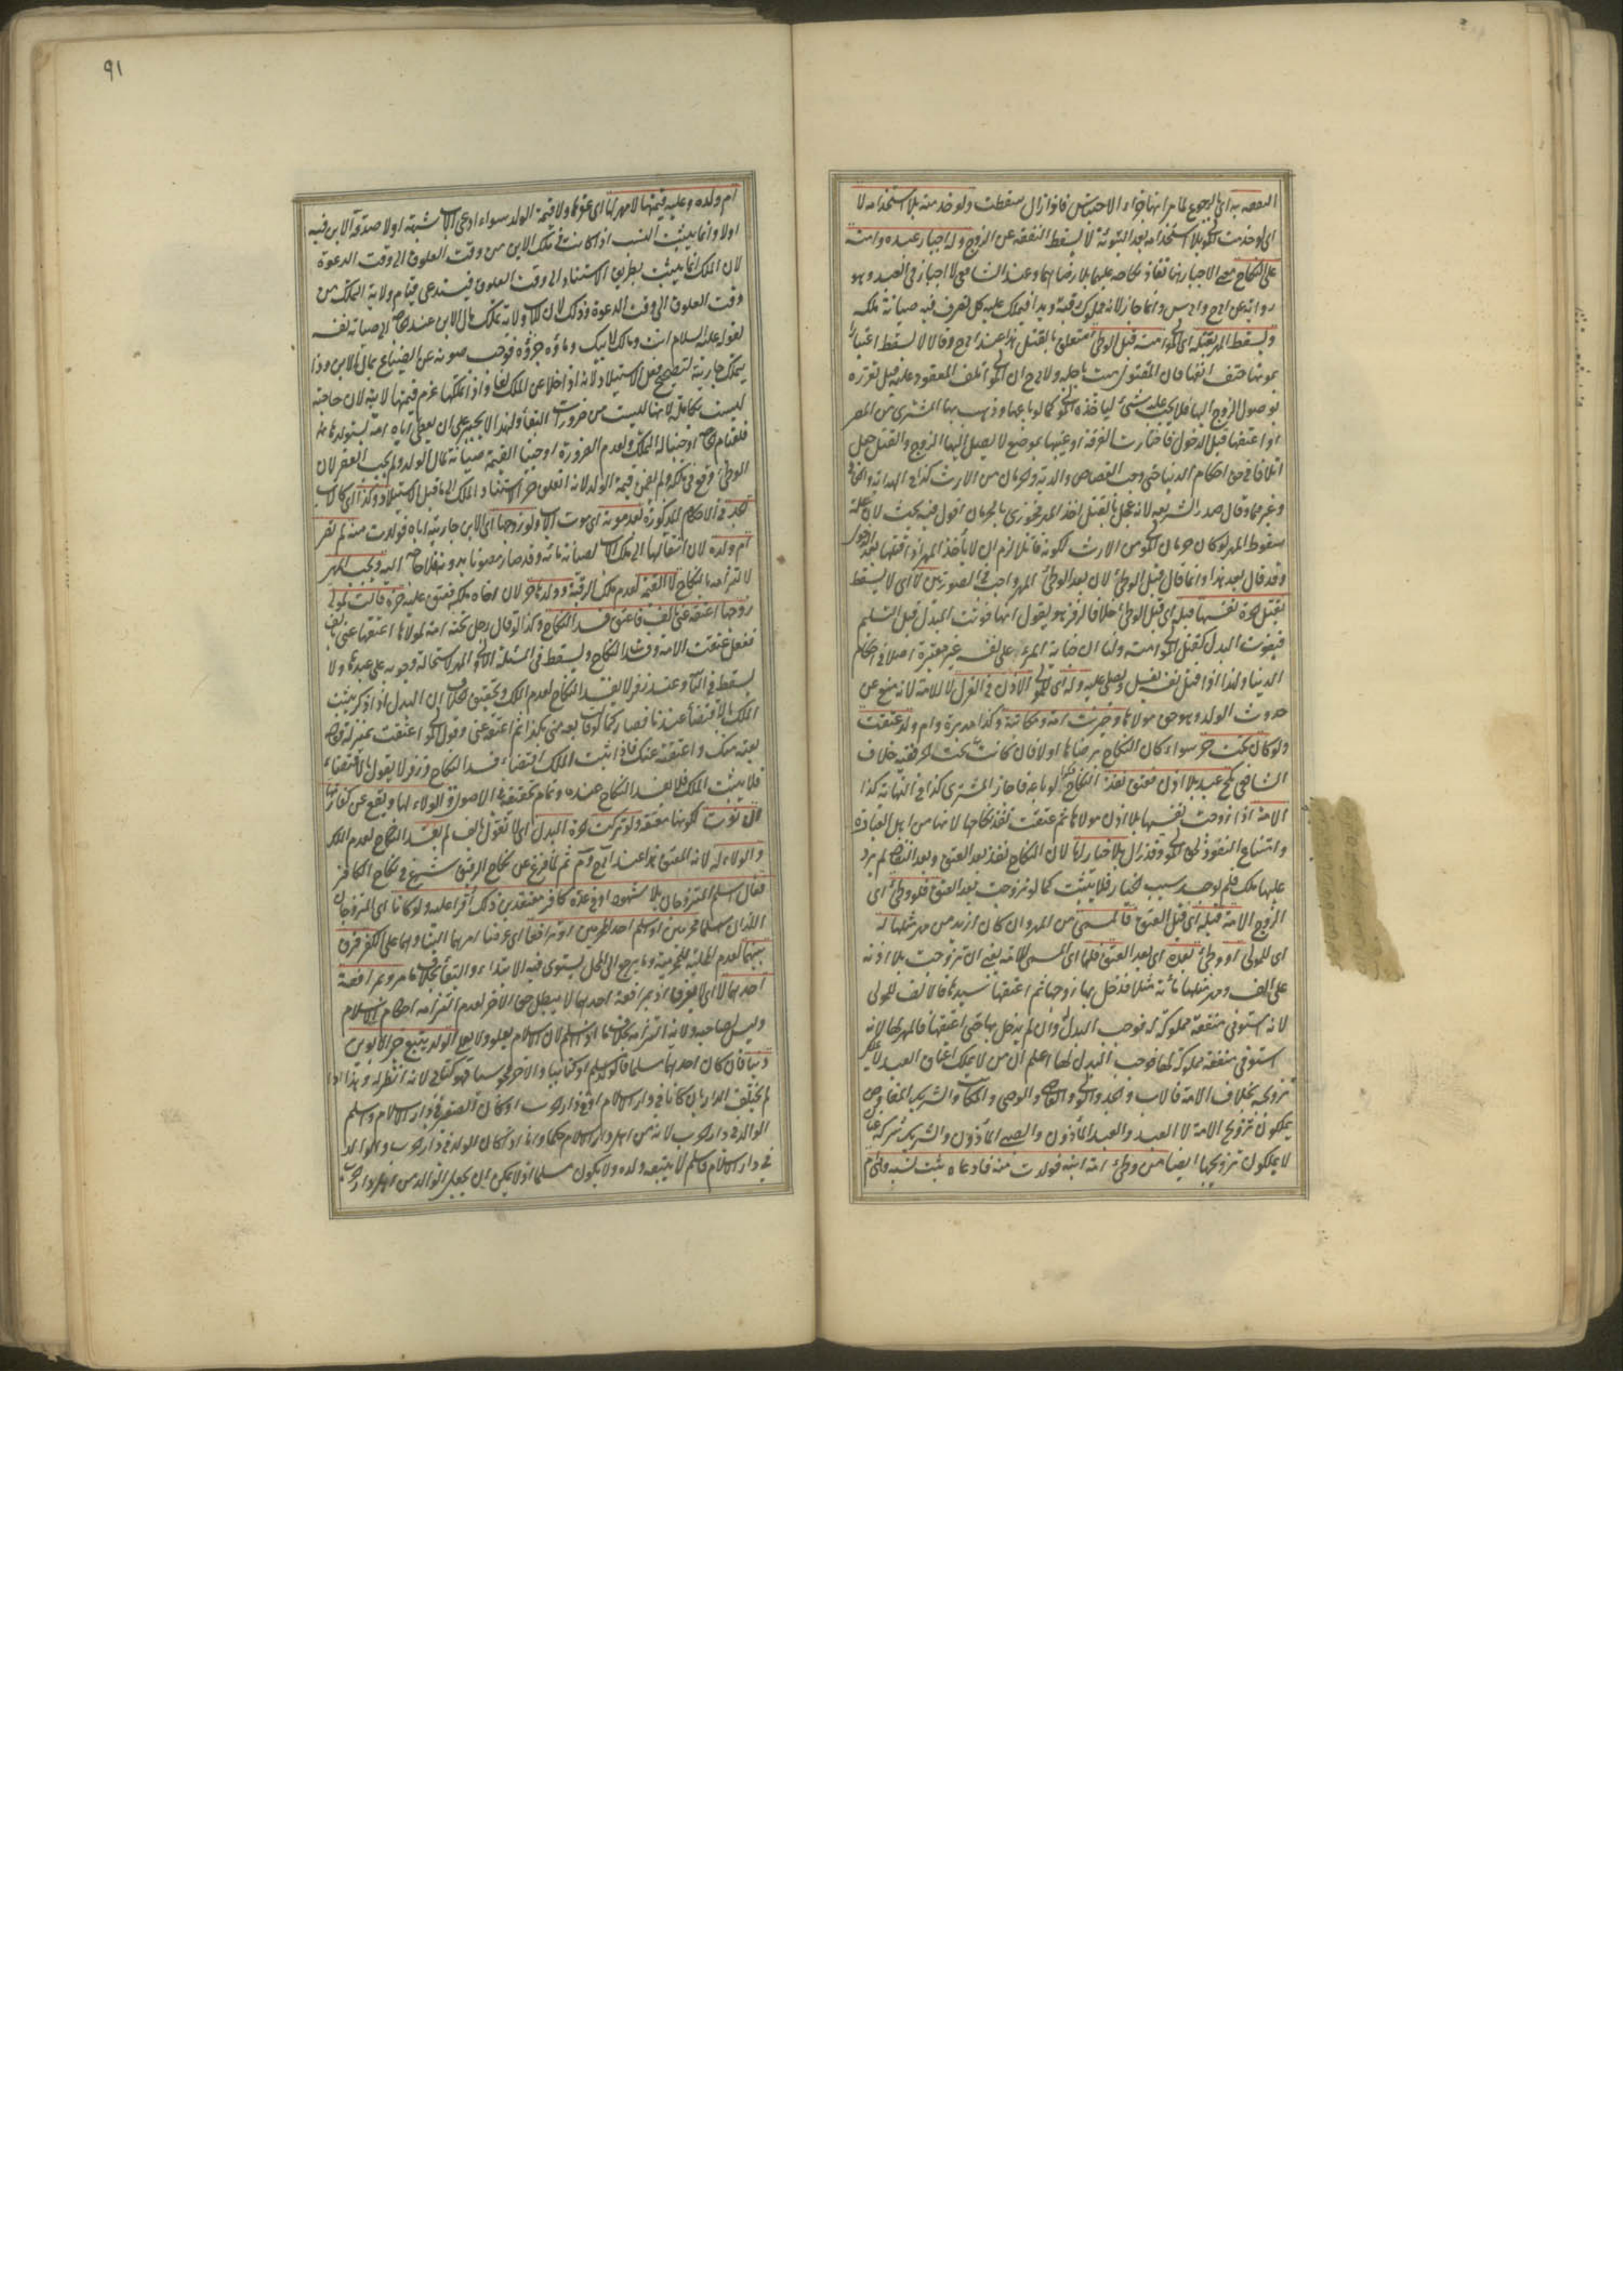 النفقة به اي الرجوع لما مر انها جزاء الاحتباس فاذا زال سقطت ولو خدمته بلا استخدامه لا
اي لو خدمت المولى بلا استخدامه بعد التبوئة لا يسقط النفقة عن الزوج وله اجبار عبده وامته
على النكاح معنى الاجبار هنا نفاذ نكاحه عليهما بلا رضاهما وعند الشافعي لا اجبار في العبد وهو
رواية عن وانما جاز لانه مملوك رقبة ويدا فيملك عليه كل تصرف فيه صيانة ملكه
ويسقط المهر بقتله اي المولى امته قبل الوطئ متعلق بالقتل هذا عند وقالا لا يسقط اعتبارا
بموتها حتف انفها فان المقتول ميت باجله ان المولى اتلف المعقود عليه قبل تقرره
بوصول الزوج اليها فلا يجب عليه شئ لياخذه المولى كما لو باعها وذهب بها المشتري من المصر
او اعتقها قبل الدخول فاختارت الفرقة او غيبها بموضع لا يصل اليها الزوج والقتل جعل
اتلافا في حق احكام الدنيا حتى وجب القصاص والدية وحرمان من الارث كذا في الهداية
وغيرهما وقال صدر الشريعة لانه عجل بالقتل اخذ المهر فجوزي بالحرمان اقول فيه بحث لان علة
سقوط المهر لو كان حرمان المولى من الارث لكونه قاتلا لزم ان لا يأخذ المهر اذا قتلها بعد الدخول
وقد قال بعد هذا وانما قال قبل الوطئ لان بعد الوطئ المهر واجب في الصورتين لا اي لا يسقط
بقتل الحرة نفسها قبله اي قبل الوطئ خلافا لزفر هو يقول انها فوتت المبدل قبل التسليم
فيفوت البدل كقتل المولى امته ولنا ان جناية المرء على نفسه غير معتبرة اصلا في احكام
الدنيا ولهذا اذا قتل نفسه يغسل ويصلى عليه وله اي للمولى الاذن في العزل لا للامة لانه منع عن
حدوث الولد وهو حق مولاها وخيرت امة ومكاتبة وكذا مدبرة وام ولد عتقت
ولو كان تحت حر سواء كان النكاح برضاها اولا فان كانت تحت خلاف
الشافعي نكح عبد بلا اذن فعتق نفذ النكاح لو باعه فاجاز المشتري كذا في النهاية كذا
الامة اذا زوجت نفسها بلا اذن مولاها ثم عتقت نفذ نكاحها لانها من اهل العبارة
وامتناع النفوذ لحق المولى وقد زال بلا خيار لها لان النكاح نفذ بعد العتق وبعد النفاذ لم يرد
عليها ملك فلم يوجد سبب الخيار فلا يثبت كما لو تزوجت بعد العتق فلو وطئ اي
الزوج الامة قبله اي قبل العتق فالمسمى من المهر وان كان ازيد من مهر مثلها له
اي للمولى او وطئ بعده اي بعد العتق فلها اي المسمى للامة يعني ان تزوجت بلا اذنه
على الف ومهر مثلها مائة مثلا فدخل بها زوجها ثم اعتقها سيدها فالالف للمولى
لانه استوفى منفعة مملوكة له فوجب البدل له وان لم يدخل بها حتى اعتقها فالمهر لها لانه
استوفى منفعة مملوكة لها فوجب البدل لها اعلم ان من لا يملك اعتاق العبد لا يملك
تزويجه بخلاف الامة فالاب والجد والمولى والقاضي والوصي والمكاتب والشريك المفاوض
يملكون تزويج الامة لا العبد والعبد المأذون والصبي المأذون والشريك شركة عنان
لا يملكون تزويجها ايضا من وطئ امة ابنه فولدت منه فادعاه ثبت نسبه وهي ام
٩١
ام ولده وعليه قيمتها لا مهرها اي عقرها ولا قيمة الولد سواء ادعى الاب شبهة اولا صدقه الابن فيه
اولا وانما يثبت النسب اذا كانت في ملك الابن من وقت العلوق الى وقت الدعوة
لان الملك انما يثبت بطريق الاستناد الى وقت العلوق فيستدعي قيام ولاية التملك من
وقت العلوق الى وقت الدعوة وذلك لان للاب ولاية تملك مال الابن عند الحاجة الى صيانة نفسه
لقوله عليه السلام انت ومالك لابيك وماؤه جزؤه فوجب صونه عن الضياع بمال الابن وذا
بتملك جاريته لتصحيح فعل الاستيلاد لانه اذا خلا عن الملك لغا واذا تملكها غرم قيمتها لابنه لان حاجته
ليست بكاملة لانها ليست من ضرورات البقاء ولهذا لا يجبر على ان يعطي اباه امة يستولدها
فلقيام الحاجة اوجبنا له التملك ولعدم الضرورة اوجبنا القيمة صيانة لمال الولد ولم يجب العقر لان
الوطئ وقع في ملكه ولم يضمن قيمة الولد لانه انعلق حرا لاستناد الملك الى ما قبل الاستيلاد وكذا اي كالاب
الجد في الاحكام المذكورة بعد موته اي موت الاب ولو زوجها اي الابن جاريته اباه فولدت منه لم تصر
ام ولده لان انتقالها الى ملك الاب لصيانة مائه وقد صار مصونا بدونه فلا حاجة اليه ويجب المهر
لالتزامه بالنكاح لا القيمة لعدم ملك الرقبة وولدها حر لان اخاه ملكه فعتق عليه حرة قالت لمولى
زوجها اعتقه عني بالف فاعتق فسد النكاح وكذا لو قال رجل تحته امة لمولاها اعتقها عني بالف
ففعل عتقت الامة وفسد النكاح ويسقط في المسئلة الاولى المهر لاستحالة وجوبه على عبدها ولا
يسقط في الثانية وعند زفر لا يفسد النكاح لعدم الملك وتحقيق الخلاف ان البدل اذا ذكر يثبت
الملك بالاقتضاء عندنا فصار كما لو قال بعه مني بكذا ثم اعتقه عني وقول المولى اعتقت بمنزلة قوله
بعته منك واعتقته عنك فاذا ثبت الملك اقتضاء فسد النكاح وزفر لا يقول بالاقتضاء
فلا يثبت الملك فلا يفسد النكاح عنده وتمام تحقيقه في الاصول والولاء لها ويقع عن كفارتها
ان نوت لكونها معتقة ولو تركت الحرة البدل اي لا تقول بالف لم يفسد النكاح لعدم الملك
والولاء له لانه المعتق هذا عند ثم لما فرغ عن نكاح الرقيق شرع في نكاح الكافر
فقال اسلم المتزوجان بلا شهود او في عدة كافر معتقدين ذلك اقرا عليه ولو كانا اي المتزوجان
اللذان اسلما محرمين او اسلم احد المحرمين او ترافعا اي عرضا امرهما الينا وهما على الكفر فرق
بينهما لعدم المحلية للمحرمية وما يرجع الى المحل يستوي فيه الابتداء والبقاء بخلاف ما مر وبمرافعة
احدهما لا اي لا يفرق اذ بمرافعة احدهما لا يبطل حق الاخر لعدم التزامه احكام الاسلام
وليس لصاحبه ولاية التزامه بخلاف ما اذا اسلم لان الاسلام يعلو ولا يعلى الولد يتبع خير الابوين
دينا فان كان احدهما مسلما فالولد مسلم او كتابيا والاخر مجوسيا فهو كتابي لانه انظر له وهذا اذا
لم يختلف الدار بان كانا في دار الاسلام او في دار الحرب او كان الصغير في دار الاسلام واسلم
الوالد في دار الحرب لانه من اهل دار الاسلام حكما واما اذا كان الولد في دار الحرب والوالد
في دار الاسلام فاسلم لا يتبعه ولده ولا يكون مسلما اذ لا يمكن ان يجعل الوالد من اهل دار الحرب